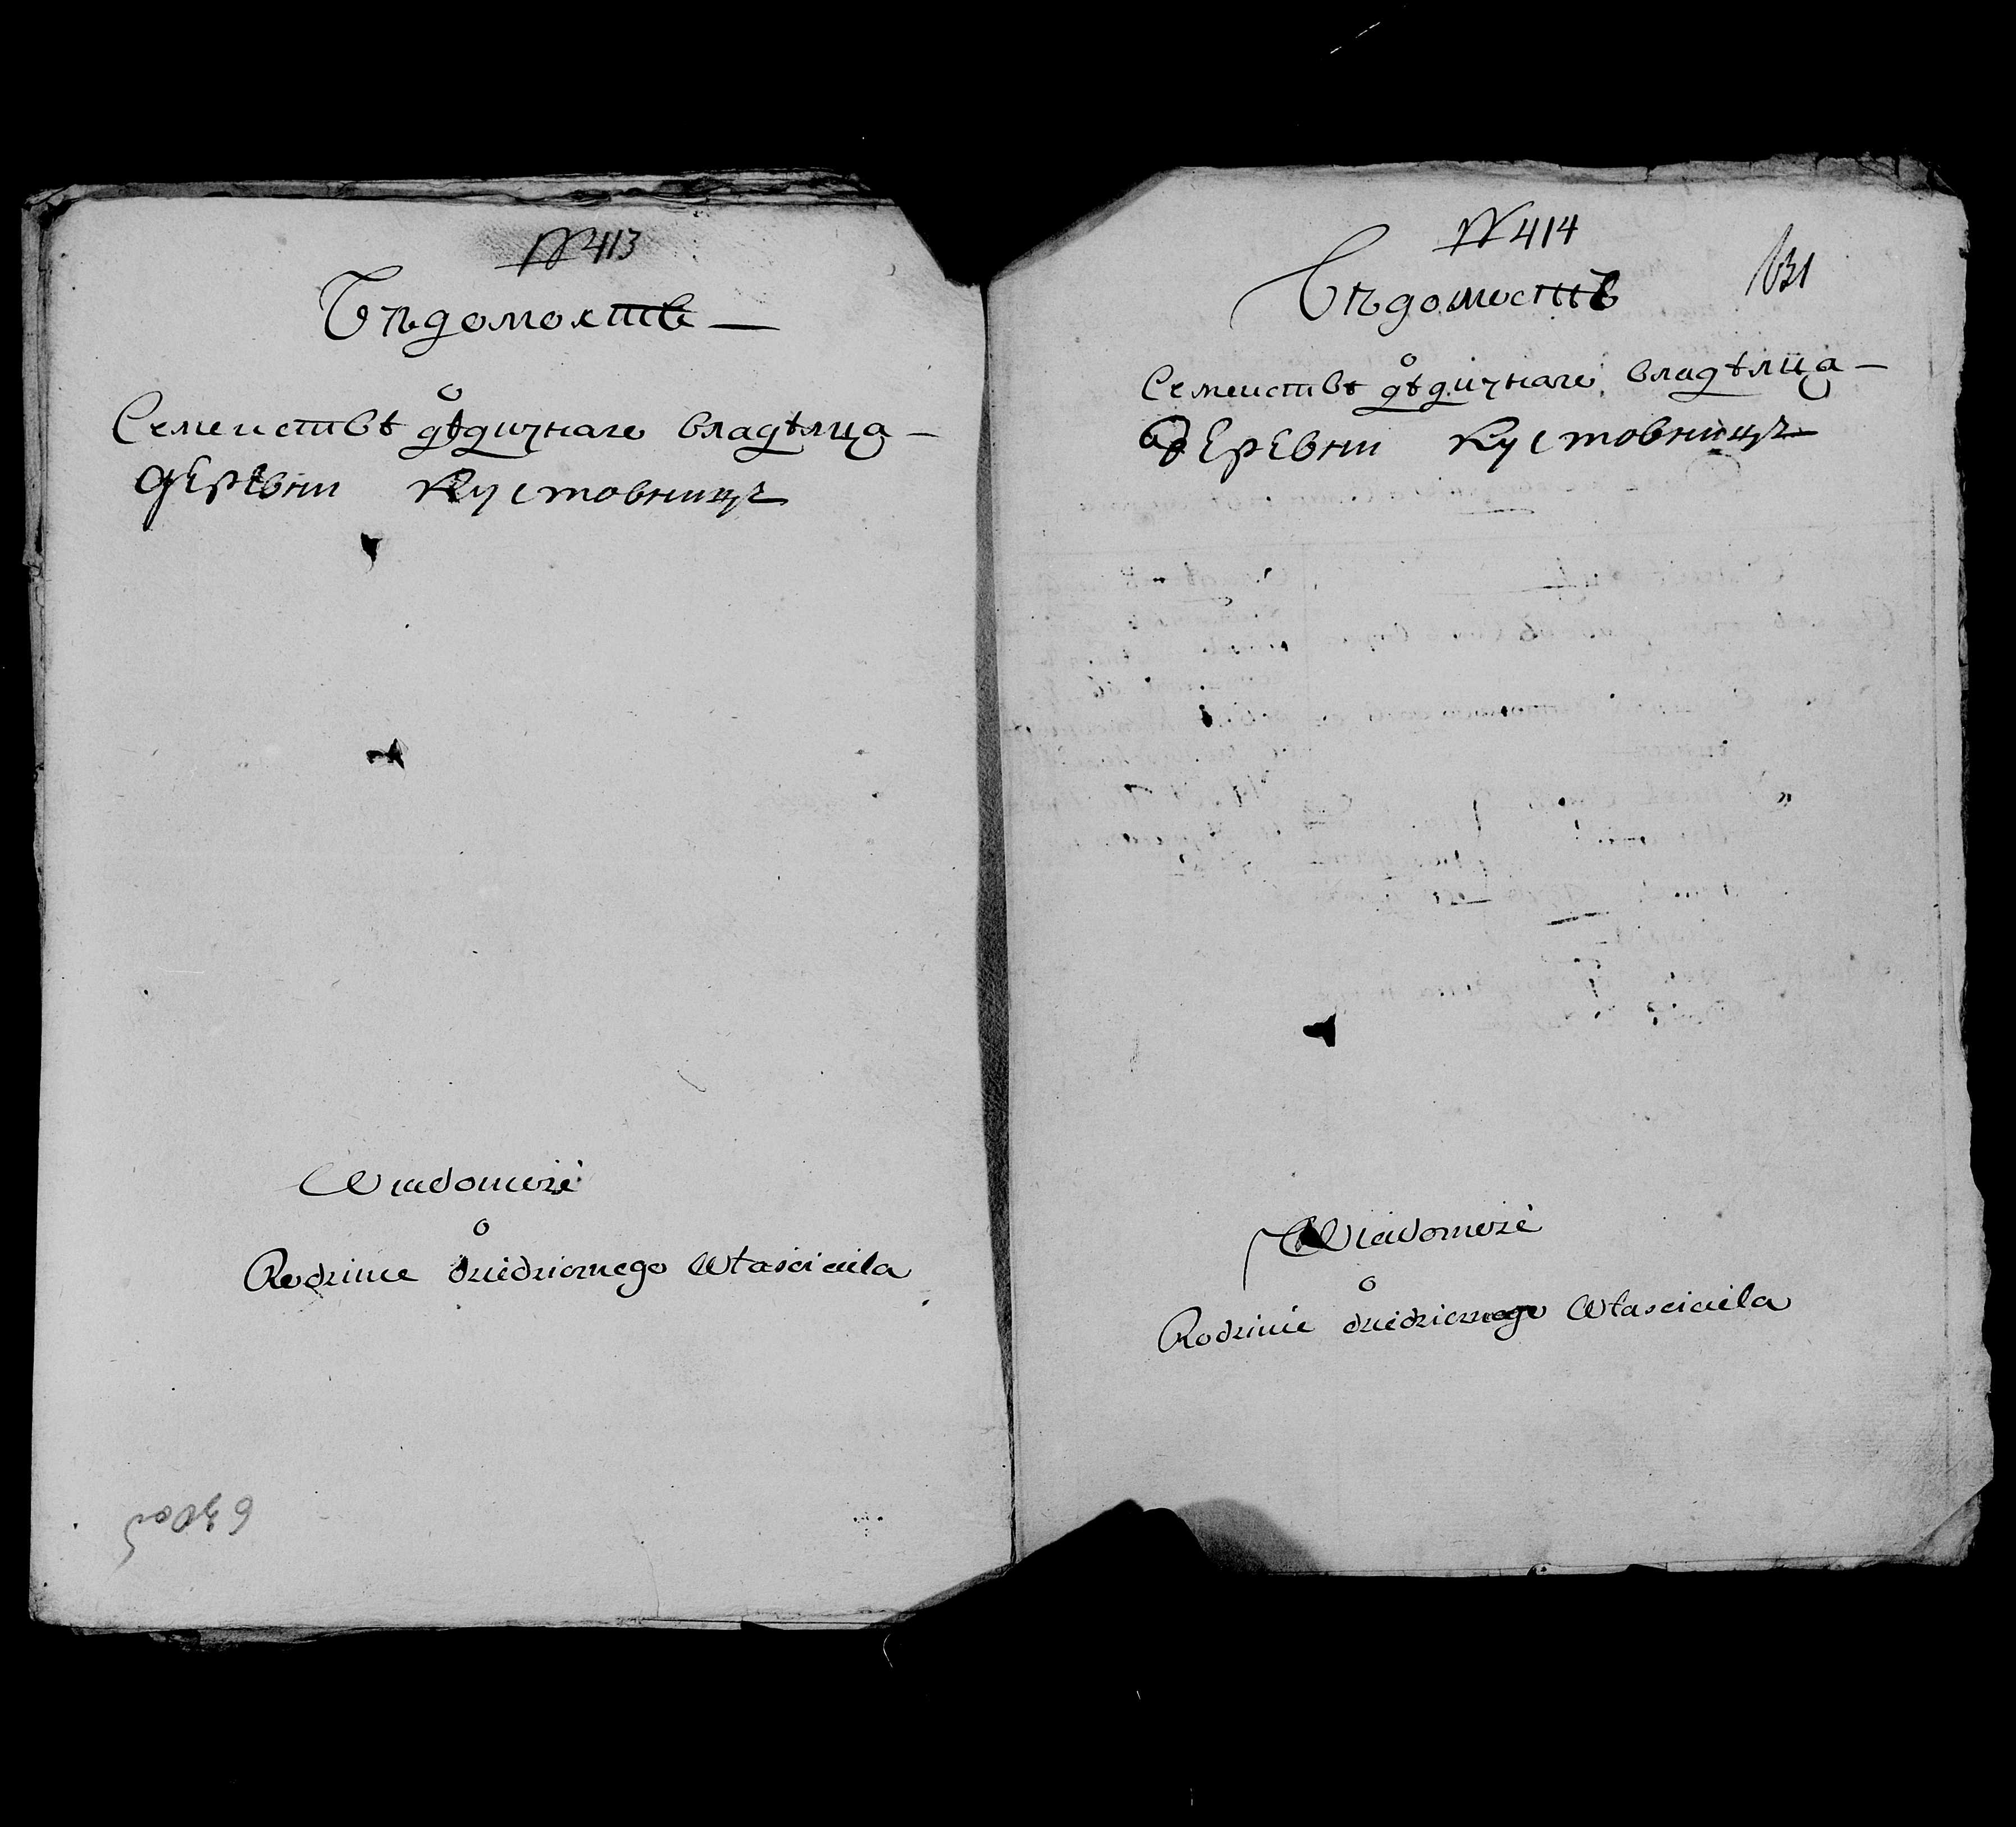 № 413
Вѣдомость —
о
Семействѣ дѣдичнаго владѣльца —
деревни Кустовницъ
Wiadomość
o
Rodzinie dziedzicznego Własciciela
630об
№ 414
631
Вѣдомость
о
Семействѣ дѣдичнаго владѣльца —
деревни Кустовницъ
Wiadomość
o
Rodzinie dziedzicznego Własciciela